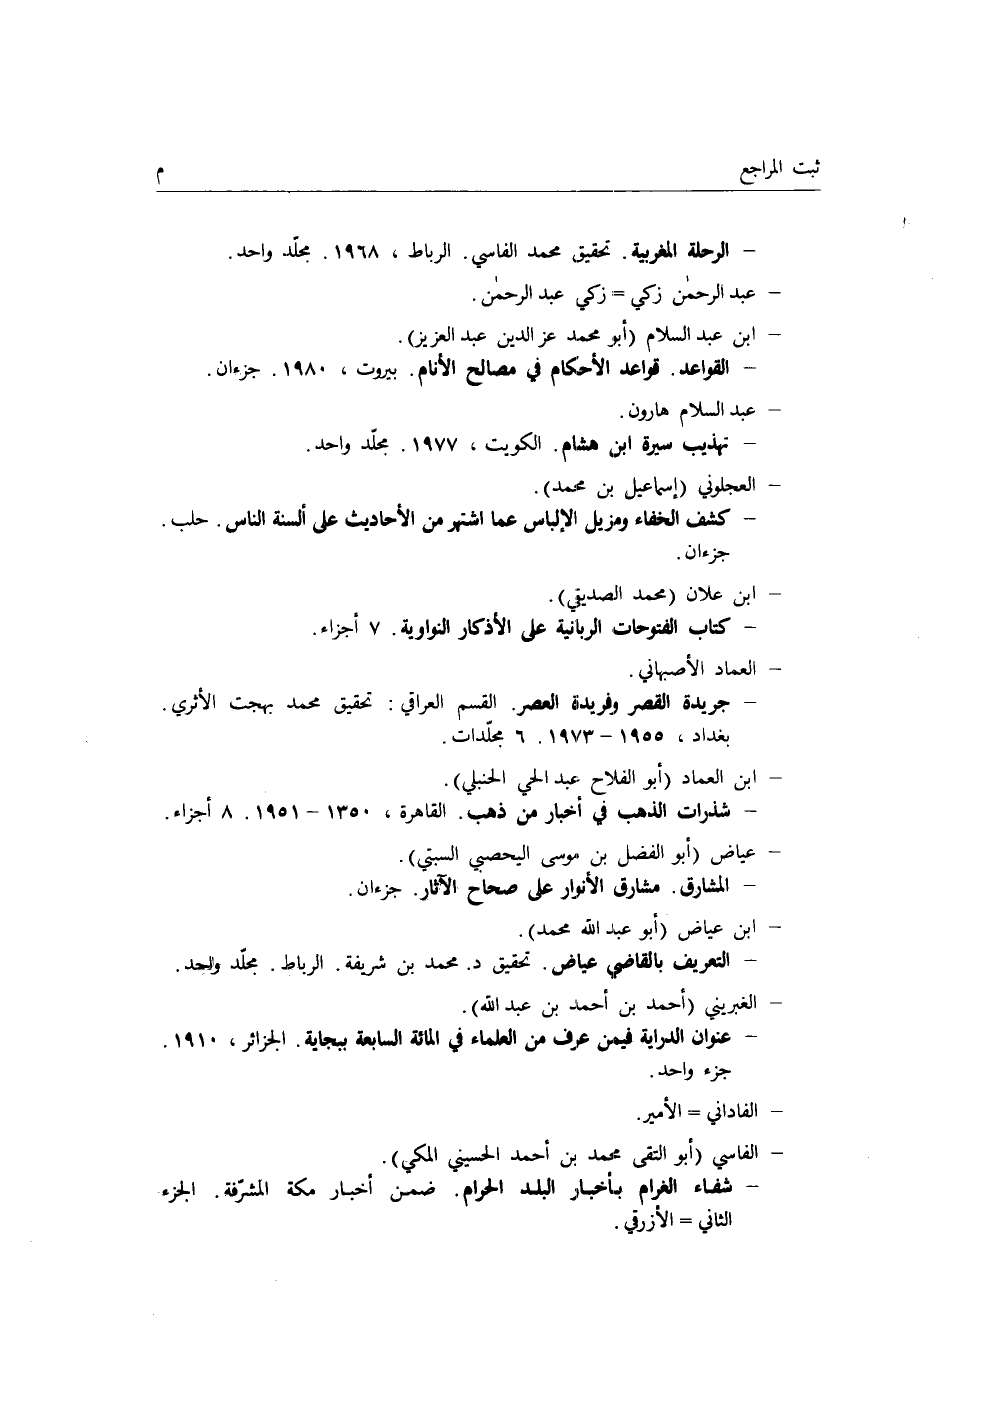 ثبت المراجع م
– الرحلة المغربية. تحقيق محمد الفاسي. الرباط ، ١٩٦٨. مجلّد واحد.
– عبد الرحمٰن زكي = زكي عبد الرحمٰن.
– ابن عبد السلام (أبو محمد عز الدين عبد العزيز).
– القواعد. قواعد الأحكام في مصالح الأنام. بيروت ، ١٩٨٠. جزءان.
– عبد السلام هارون.
– تهذيب سيرة ابن هشام. الكويت ، ١٩٧٧. مجلّد واحد.
– العجلوني (إسماعيل بن محمد).
– كشف الخفاء ومزيل الإلباس عما اشتهر من الأحاديث على ألسنة الناس. حلب.
جزءان.
– ابن علان (محمد الصديقي).
– كتاب الفتوحات الربانية على الأذكار النواوية. ٧ أجزاء.
– العماد الأصبهاني.
– جريدة القصر وفريدة العصر. القسم العراقي : تحقيق محمد بهجت الأثري.
بغداد ، ١٩٥٥ – ١٩٧٣. ٦ مجلّدات.
– ابن العماد (أبو الفلاح عبد الحي الحنبلي).
– شذرات الذهب في أخبار من ذهب. القاهرة ، ١٣٥٠ – ١٩٥١. ٨ أجزاء.
– عياض (أبو الفضل بن موسى اليحصبي السبتي).
– المشارق. مشارق الأنوار على صحاح الآثار. جزءان.
– ابن عياض (أبو عبد الله محمد).
– التعريف بالقاضي عياض. تحقيق د. محمد بن شريفة. الرباط. مجلّد واحد.
– الغبريني (أحمد بن أحمد بن عبد الله).
– عنوان الدراية فيمن عرف من العلماء في المائة السابعة ببجاية. الجزائر ، ١٩١٠.
جزء واحد.
– الفاداني = الأمير.
– الفاسي (أبو التقى محمد بن أحمد الحسيني المكي).
– شفاء الغرام بأخبار البلد الحرام. ضمن أخبار مكة المشرّفة. الجزء
الثاني = الأزرقي.